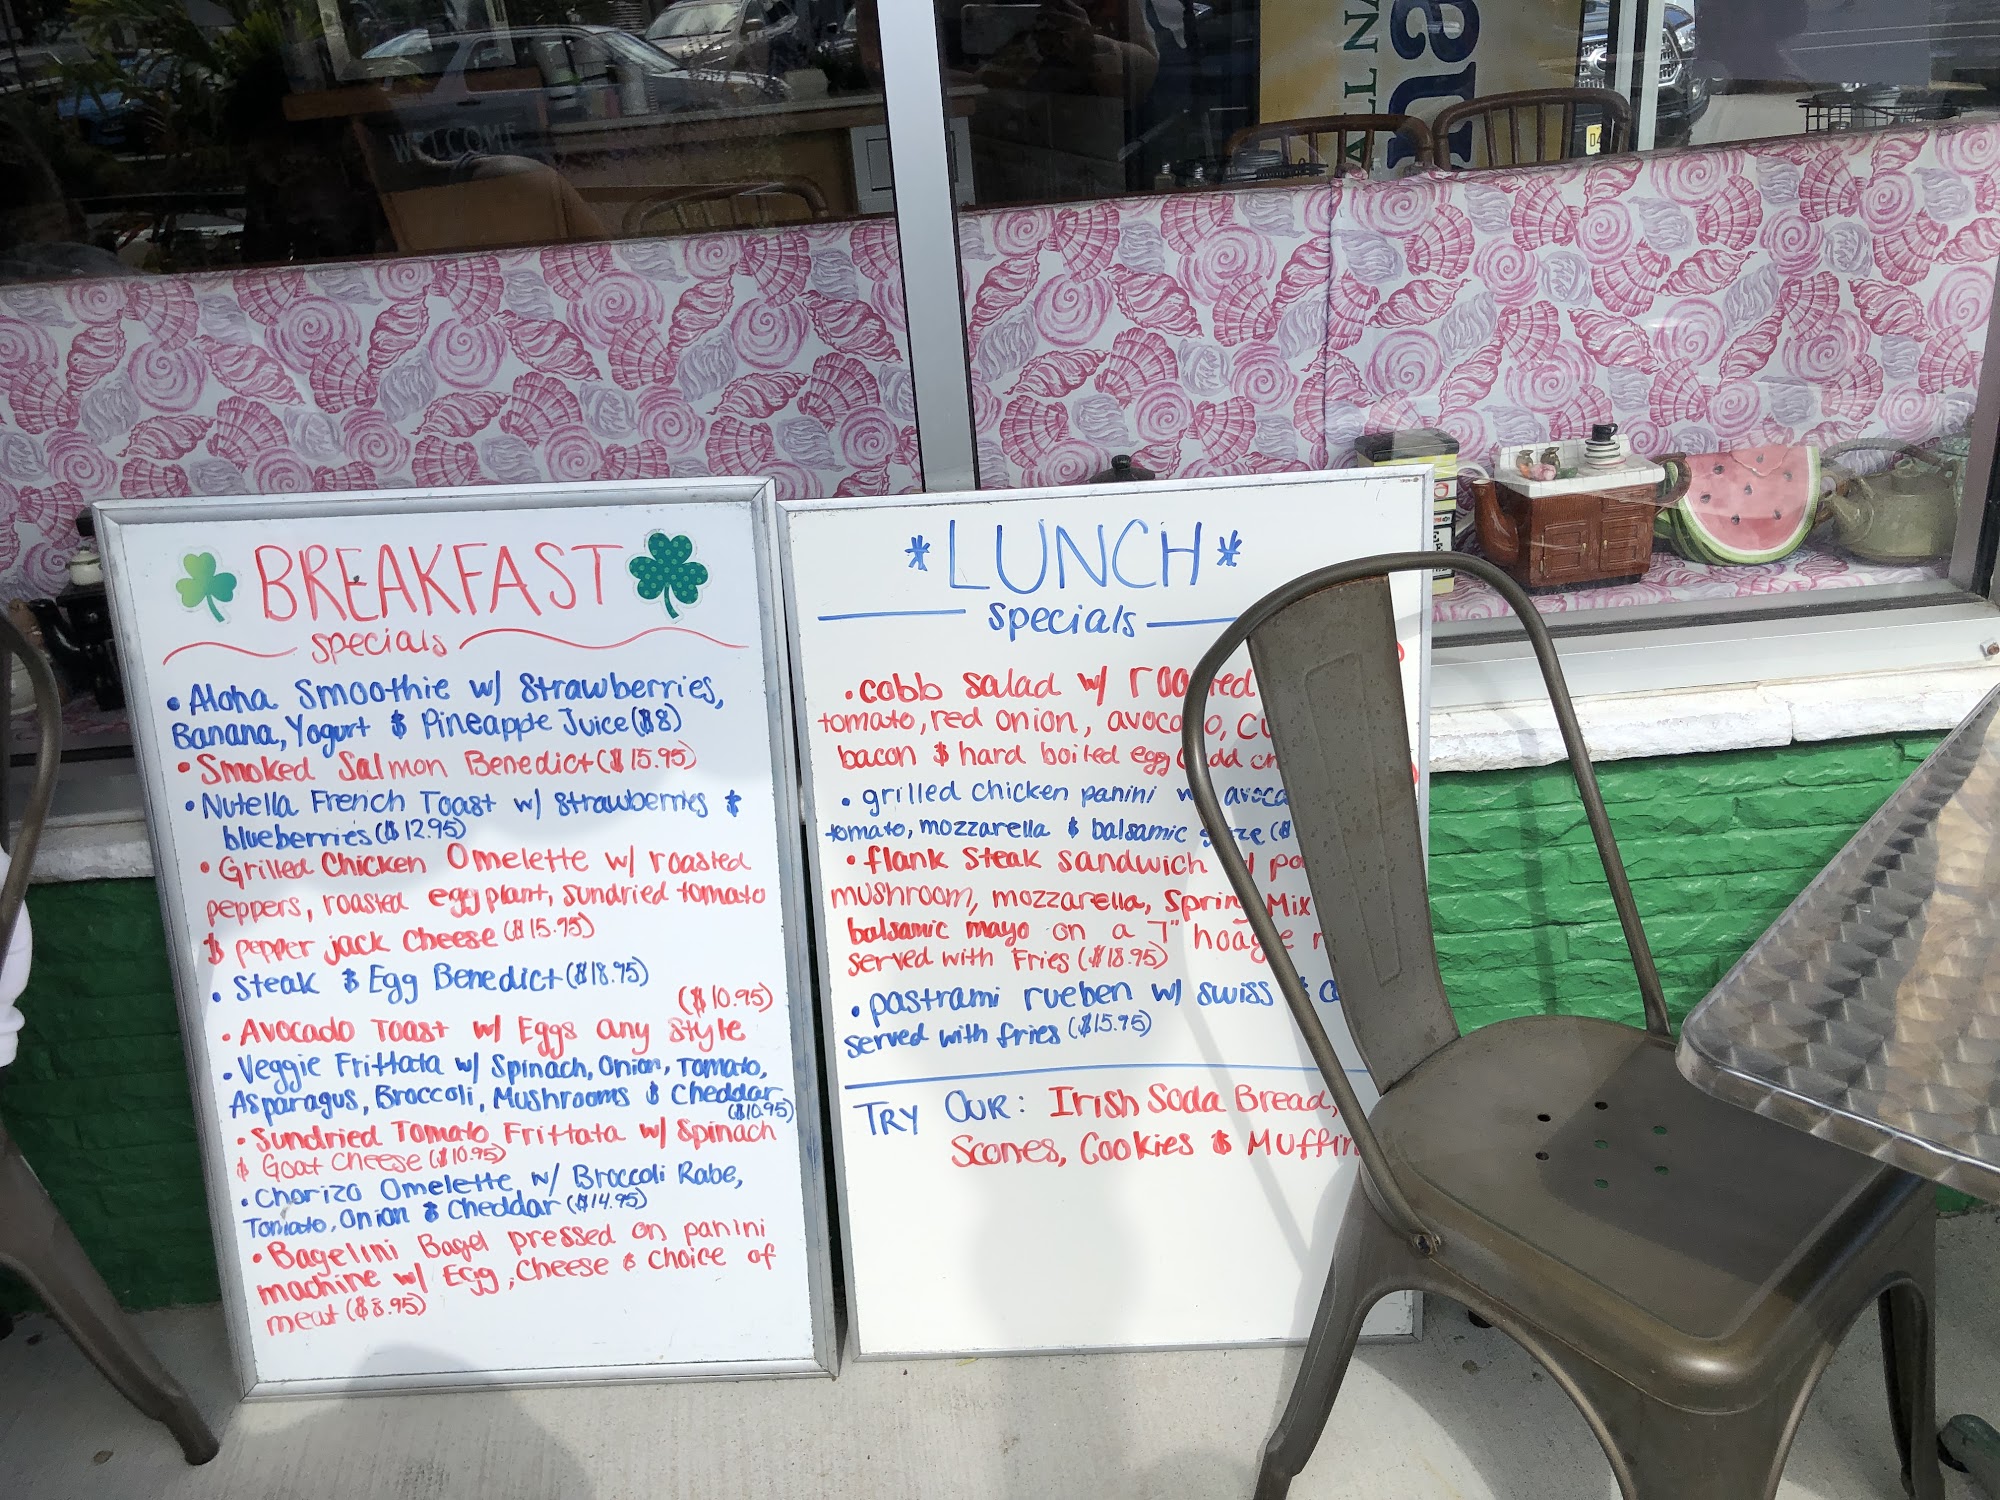 WELCOME
ALL NA
na
BREAKFAST
specials
• Aloha Smoothie w/ Strawberries,
Banana, Yogurt & Pineapple Juice ($8)
• Smoked Salmon Benedict ($15.95)
• Nutella French Toast w/ Strawberries &
blueberries ($12.95)
• Grilled Chicken Omelette w/ roasted
peppers, roasted eggplant, sundried tomato
& pepper jack cheese ($15.95)
• Steak & Egg Benedict ($18.95)
($10.95)
• Avocado Toast w/ Eggs any style
• Veggie Frittata w/ Spinach, Onion, Tomato,
Asparagus, Broccoli, Mushrooms & Cheddar
($10.95)
• Sundried Tomato Frittata w/ Spinach
& Goat Cheese ($10.95)
• Chorizo Omelette w/ Broccoli Rabe,
Tomato, Onion & Cheddar ($14.95)
• Bagelini Bagel pressed on panini
machine w/ Egg, Cheese & Choice of
meat ($8.95)
*LUNCH*
specials
• cobb salad w/ roasted
tomato, red onion, avocado, cu
bacon & hard boiled egg (add ch
• grilled chicken panini w/ avoca
tomato, mozzarella & balsamic glaze ($
• flank steak sandwich w/ po
mushroom, mozzarella, spring mix
balsamic mayo on a 7" hoagie r
served with fries ($18.95)
• pastrami rueben w/ swiss &
served with fries ($15.95)
TRY OUR: Irish Soda Bread,
Scones, Cookies & Muffin